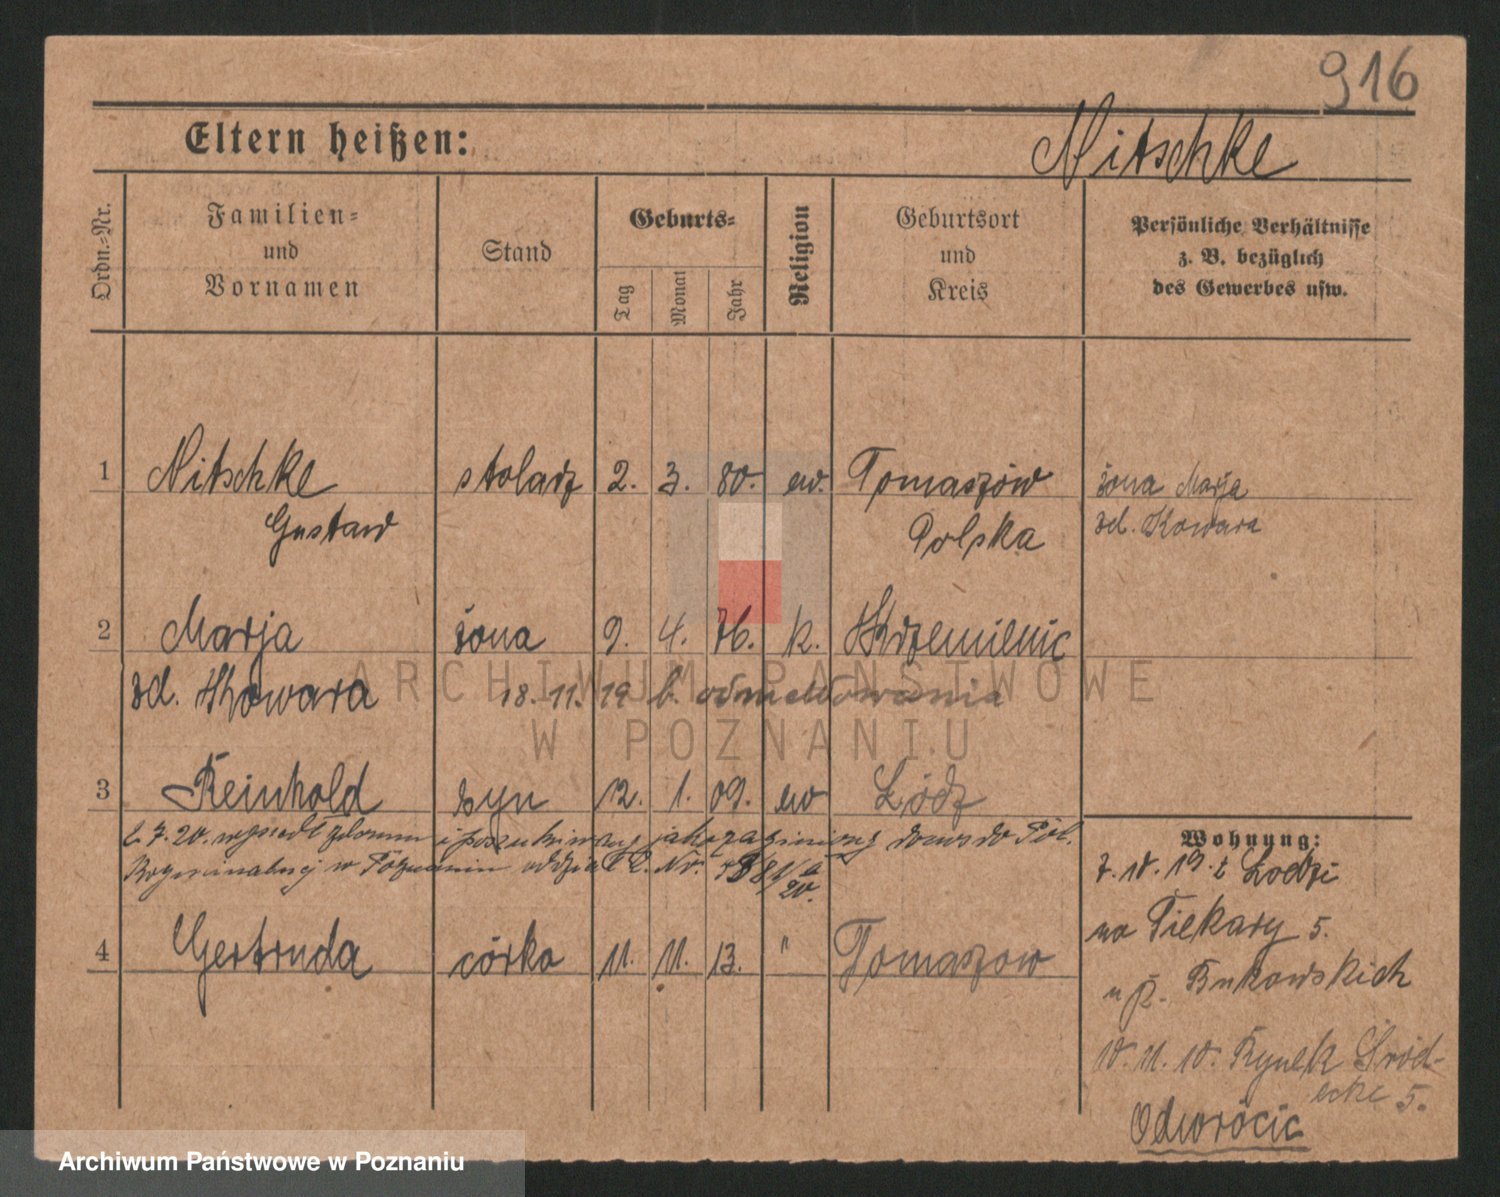 916
Eltern heißen:
Nitschke
Ordn.-Nr.
Familien-
und
Vornamen
Stand
Geburts-
Tag
Monat
Jahr
Religion
Geburtsort
und
Kreis
Persönliche Verhältnisse
z. B. bezüglich
des Gewerbes usw.
1 Nitschke stolarz 2. 3. 80. ew. Tomaszów żona Marja
Gustaw Polska zd. Kowara
2 Marja żona 9. 4. 76. k. Krzemienic
zd. Kowara 18. 11. 19 b. odmeldowania
3 Reinhold syn 12. 1. 09. ew Łódź
7. 20. wyszedł z domu i poszukiwany jako zaginiony
Kryminalnej w Poznaniu
4 Gertruda córka 11. 11. 13. " Tomaszow
Wohnung:
7. 10. 19. z Łodzi
na Piekary 5.
u p. Bukowskich
10. 11. 10. Rynek Śród-
ecke 5.
Odwrócić
ARCHIWUM PAŃSTWOWE
W POZNANIU
Archiwum Państwowe w Poznaniu